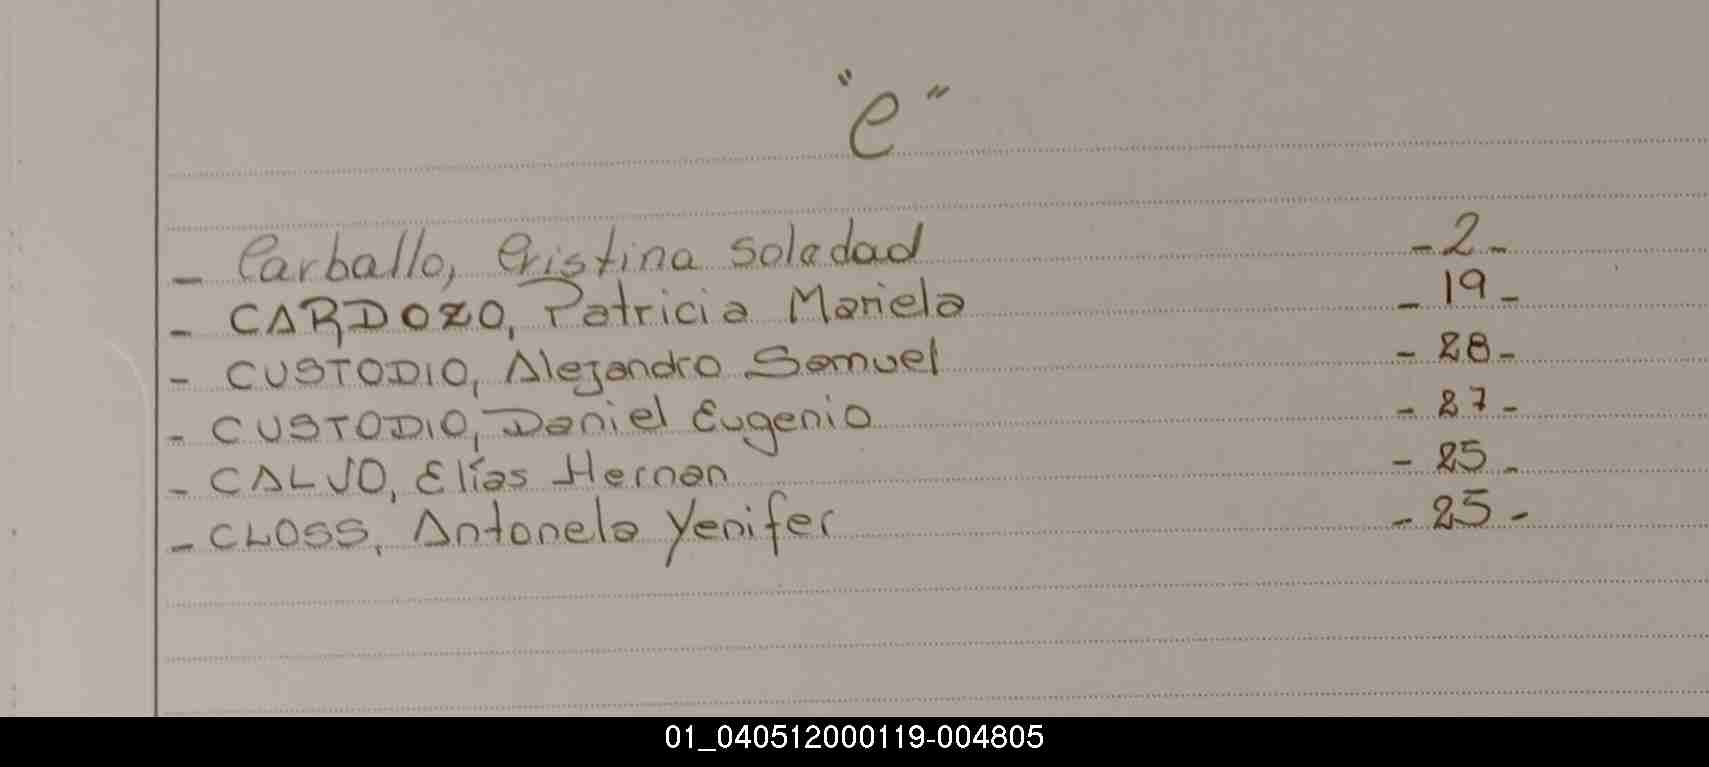 "C"
- Carballo, Cristina Soledad -2-
- CARDOZO, Patricia Mariela -19-
- CUSTODIO, Alejandro Samuel -28-
- CUSTODIO, Daniel Eugenio -27-
- CALVO, Elías Hernan -25-
- CLOSS, Antonela Yenifer -25-
01_040512000119-004805